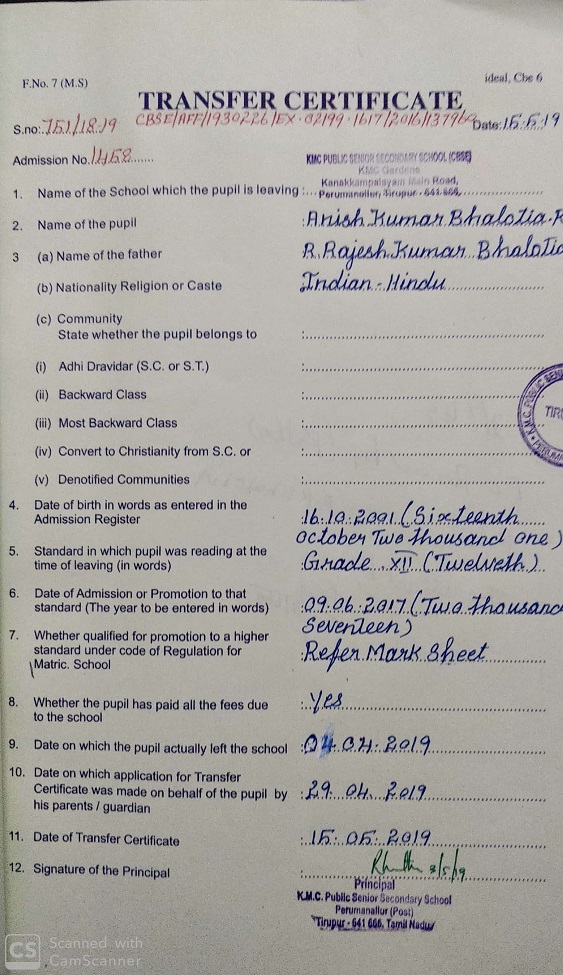 F.No. 7 (M.S)
ideal, Cbe 6
TRANSFER CERTIFICATE
S.no: 751/18.19
CBSE/AFF/1930226/EX-02199-1617/2016/137960
Date: 15.5.19
Admission No. 1458
KMC PUBLIC SENIOR SECONDARY SCHOOL (CBSE)
KMC Gardens
Kanakkampalayam Main Road,
1. Name of the School which the pupil is leaving : Perumanallur, Tirupur - 641 666.
2. Name of the pupil : Anish Kumar Bhalotia. R
3 (a) Name of the father R. Rajesh Kumar Bhalotia
(b) Nationality Religion or Caste Indian - Hindu
(c) Community
State whether the pupil belongs to :
(i) Adhi Dravidar (S.C. or S.T.) :
(ii) Backward Class :
(iii) Most Backward Class :
(iv) Convert to Christianity from S.C. or :
(v) Denotified Communities :
4. Date of birth in words as entered in the
Admission Register : 16.10.2001 (Sixteenth
October Two thousand one)
5. Standard in which pupil was reading at the
time of leaving (in words) : Grade XII (Twelveth)
6. Date of Admission or Promotion to that
standard (The year to be entered in words) : 09.06.2017 (Two thousand
Seventeen)
7. Whether qualified for promotion to a higher
standard under code of Regulation for : Refer Mark Sheet
Matric. School
8. Whether the pupil has paid all the fees due : Yes
to the school
9. Date on which the pupil actually left the school : 04.04.2019
10. Date on which application for Transfer
Certificate was made on behalf of the pupil by : 29.04.2019
his parents / guardian
11. Date of Transfer Certificate : 15.05.2019
12. Signature of the Principal :
Principal
K.M.C. Public Senior Secondary School
Perumanallur (Post)
Tirupur - 641 666, Tamil Nadu
K.M.C. PUBLIC SEN
TIR
PERUM
CS Scanned with
CamScanner